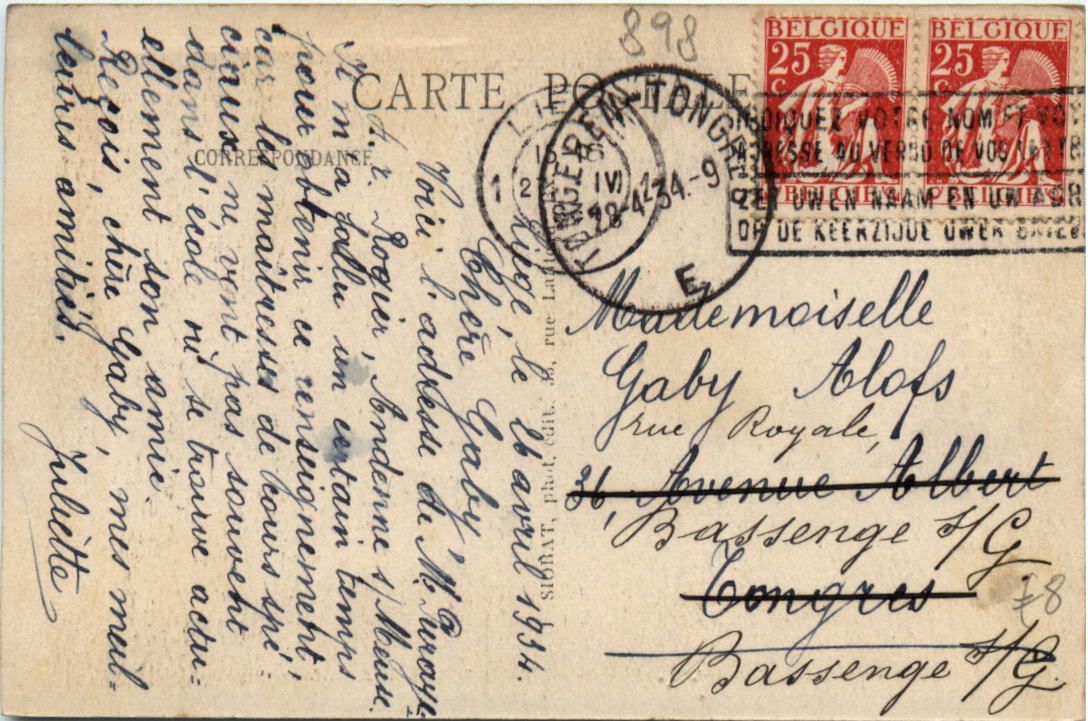 898
BELGIQUE BELGIQUE
25 25
c c
BELGIE BELGIE
CARTE POSTALE
CORRESPONDANCE
TONGEREN-TONGRES
28-4-34.-9
E
INDIQUEZ VOTRE NOM ET VOTRE
ADRESSE AU VERSO DE VOS
UWEN NAAM EN UW
OP DE KEERZIJDE UWER
Liège, le 26 avril 1934.
Chère Gaby,
Voici l'adresse de
A. r. Rogier, Andenne s/ Meuse.
Il m'a fallu un certain temps
pour obtenir ce renseignement,
car les maîtresses de cours spé-
ciaux ne vont pas souvent
dans l'école où se trouve actu-
ellement son amie.
Reçois, chère Gaby, mes meil-
leures amitiés.
Juliette
SIGRAT, phot. édit., rue
Mademoiselle
Gaby Alofs
rue Royale,
36, Avenue Albert
Bassenge s/G
Tongres
Bassenge s/G.
78